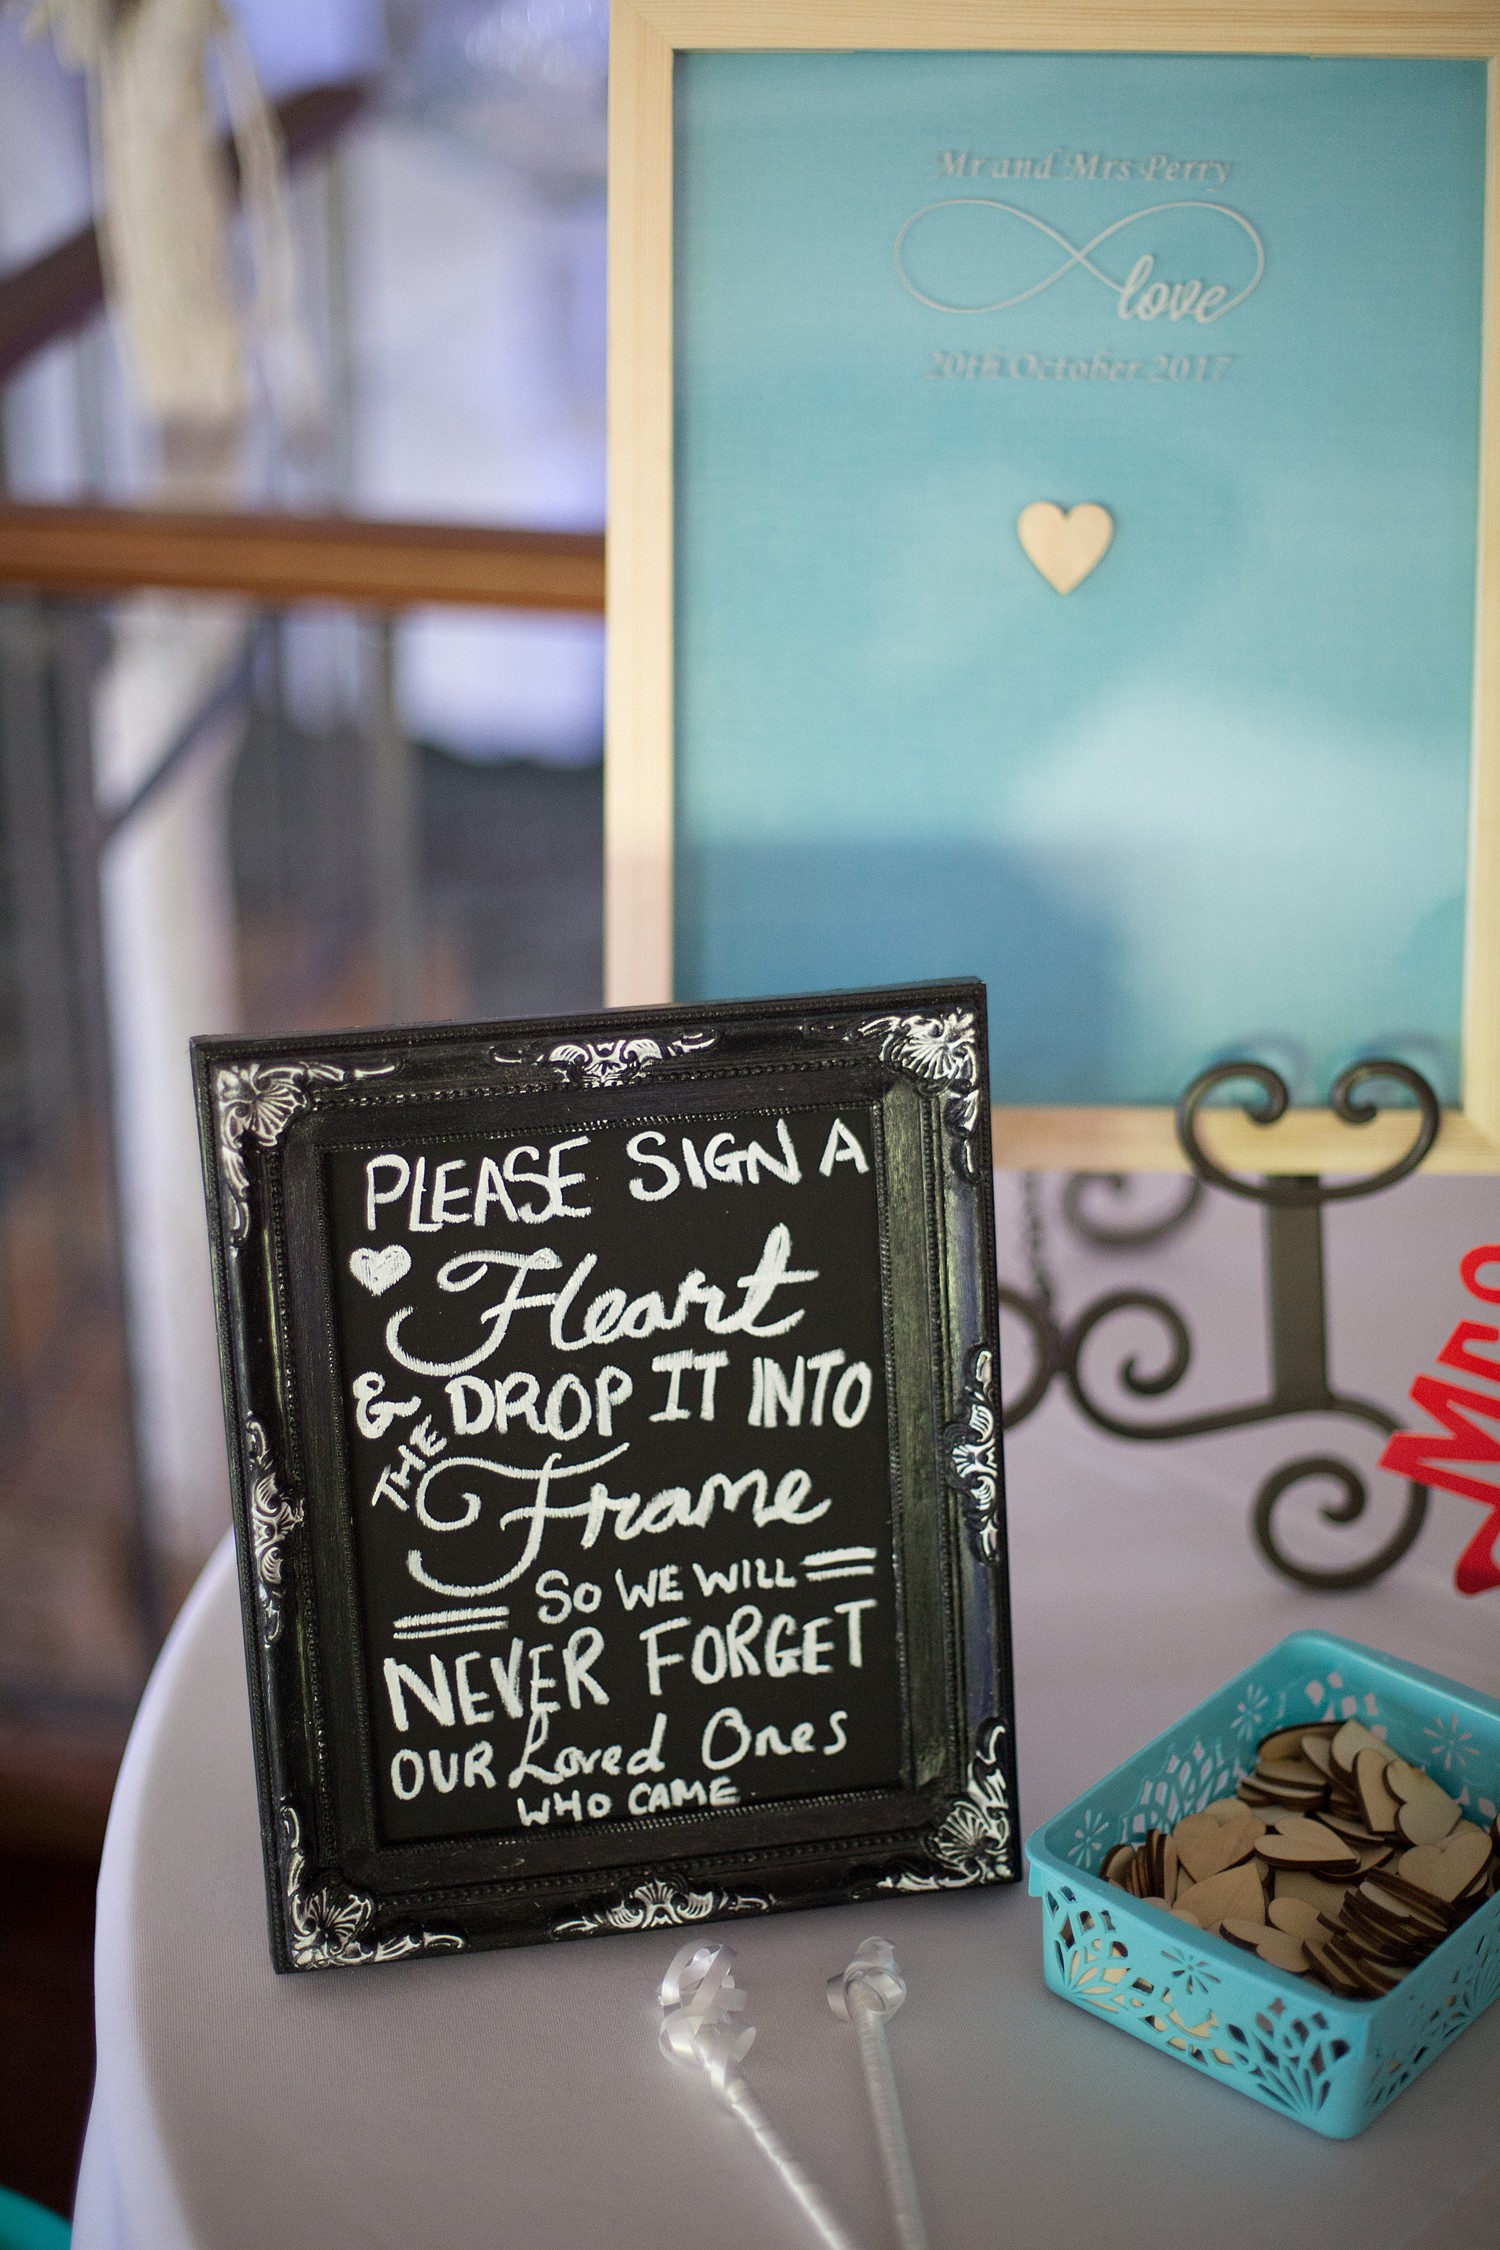 Mr and Mrs Perry
love
20th October 2017
PLEASE SIGN A
Heart
& DROP IT INTO
THE Frame
SO WE WILL
NEVER FORGET
OUR Loved Ones
WHO CAME
Mrs